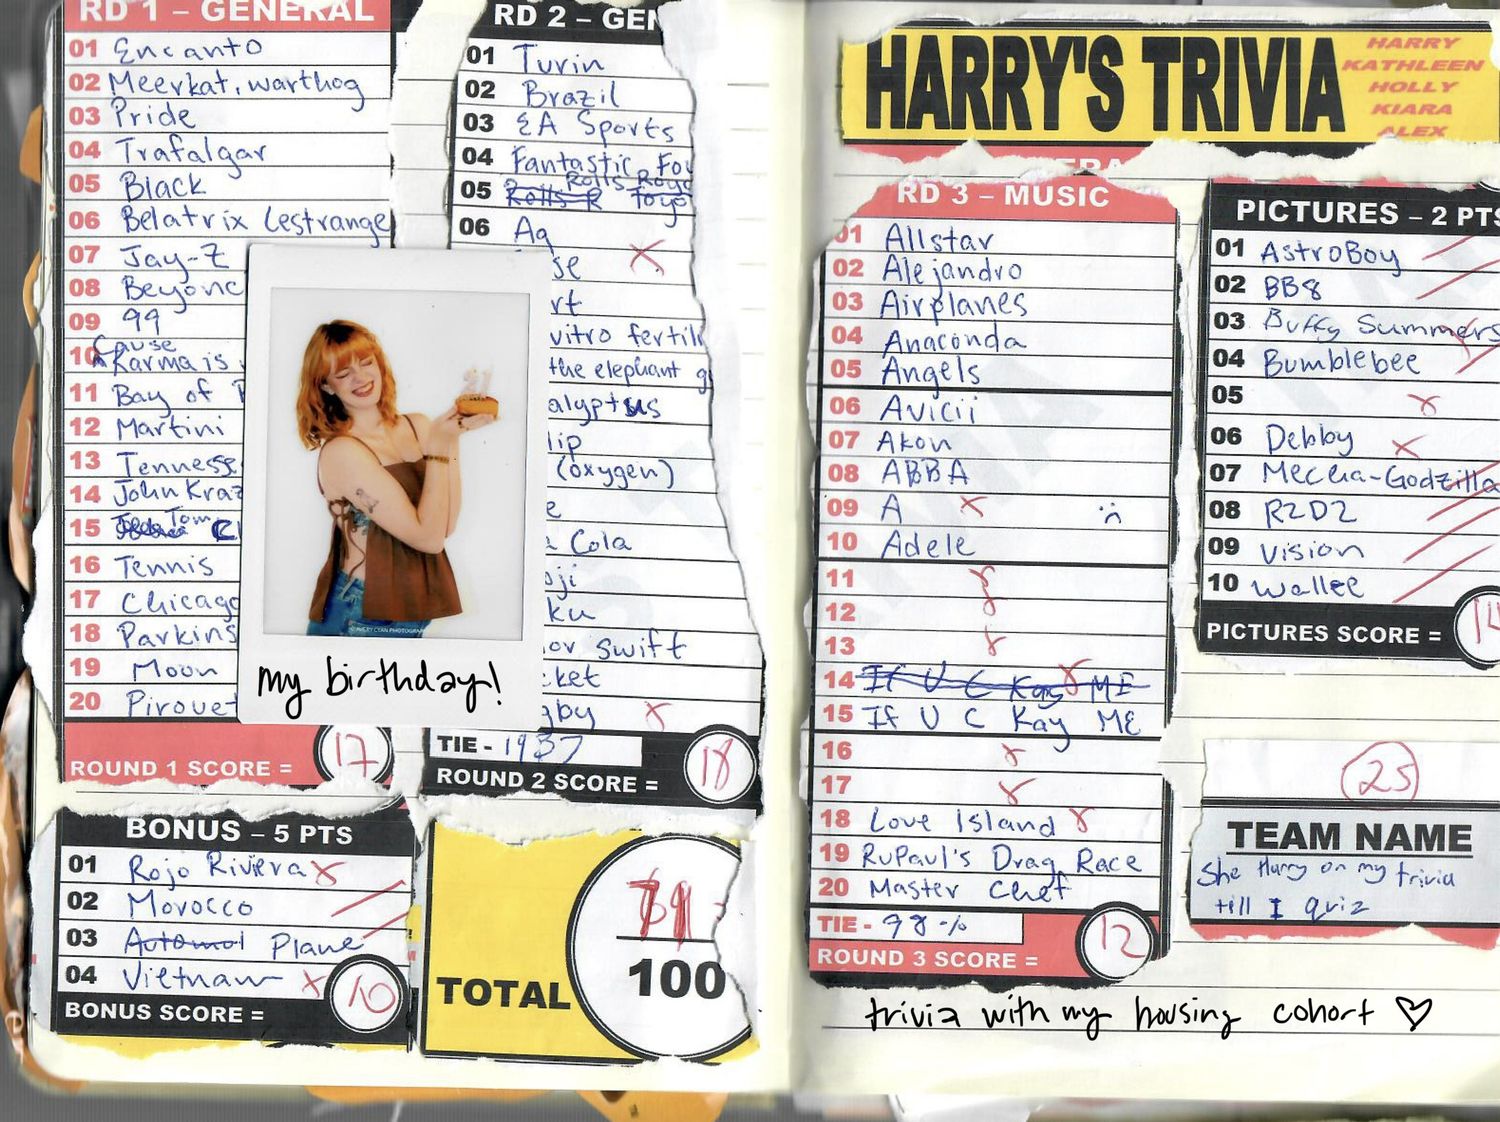 RD 1 – GENERAL
01 Encanto
02 Meerkat, warthog
03 Pride
04 Trafalgar
05 Black
06 Belatrix Lestrange
07 Jay-Z
08 Beyonc
09 99
10 Cause Karma is
11 Bay of
12 Martini
13 Tennesse
14 John Kraz
15 Tom
16 Tennis
17 Chicago
18 Parkins
19 Moon
20 Pirouet
ROUND 1 SCORE = 17
my birthday!
BONUS – 5 PTS
01 Rojo Riviera
02 Morocco
03 Automol Plane
04 Vietnam
BONUS SCORE = 10
RD 2 – GEN
01 Turin
02 Brazil
03 EA Sports
04 Fantastic Fou
05 Rolls R Rolls Royc Toyo
06 Ag
se
rt
vitro fertili
the elephant g
alyptus
lip
(oxygen)
e
Cola
oji
ku
or Swift
cket
gby
TIE - 1937
ROUND 2 SCORE = 18
TOTAL
100
HARRY'S TRIVIA
HARRY
KATHLEEN
HOLLY
KIARA
ALEX
RD 3 – MUSIC
01 Allstar
02 Alejandro
03 Airplanes
04 Anaconda
05 Angels
06 Avicii
07 Akon
08 ABBA
09 A :(
10 Adele
11
12
13
14 If U C Kay ME
15 If U C Kay ME
16
17
18 Love Island
19 RuPaul's Drag Race
20 Master Chef
TIE - 98%
ROUND 3 SCORE = 12
PICTURES – 2 PTS
01 AstroBoy
02 BB8
03 Buffy Summers
04 Bumblebee
05
06 Debby
07 Meccha-Godzilla
08 R2D2
09 Vision
10 Wallee
PICTURES SCORE = 14
25
TEAM NAME
She Harry on my trivia
till I quiz
trivia with my housing cohort ♡